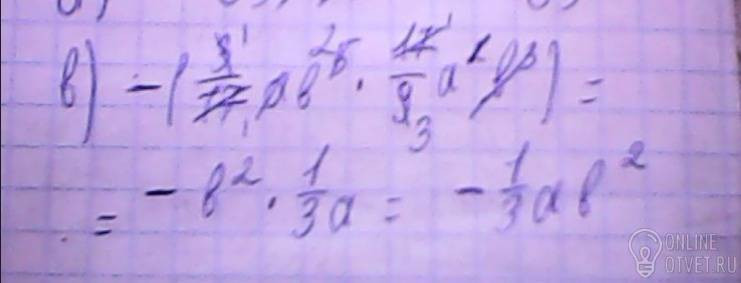 в) -(3/17 ab⁵ · 17/9 a² b³) =
= - b² · 1/3 a = - 1/3 ab²
ONLINE
OTVET.RU